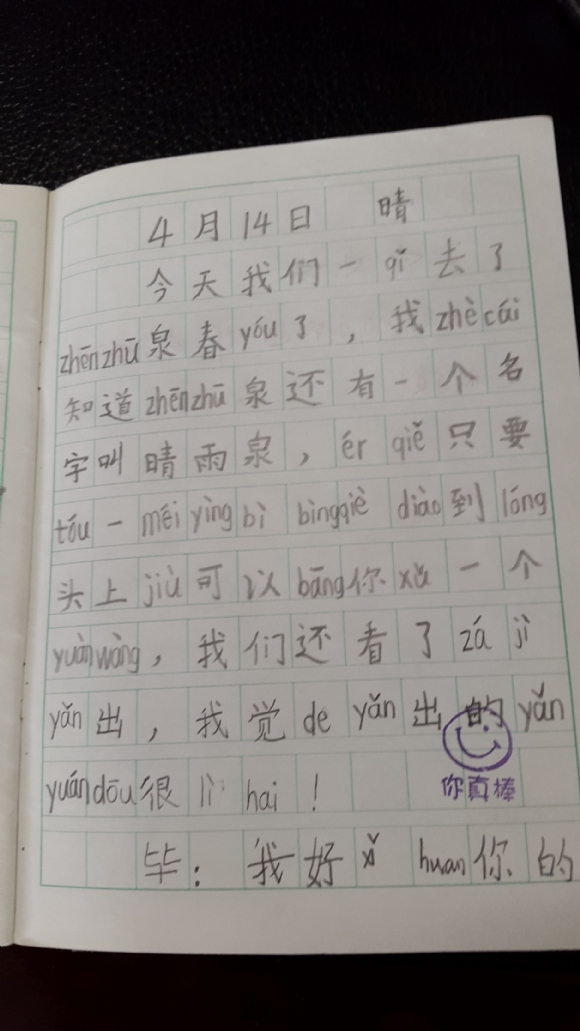 4月14日 晴
今天我们一qǐ去了
zhēnzhū泉春yóu了，我zhècái
知道zhēnzhū泉还有一个名
字叫晴雨泉，ér qiě只要
tóu一méi yìng bì bìngqiè diào到lóng
头上jiù可以bāng你xǔ一个
yuànwàng，我们还看了zá jì
yǎn出，我觉de yǎn出的yǎn
yuándōu很lì hai！
你真棒
毕：我好xǐ huan你的